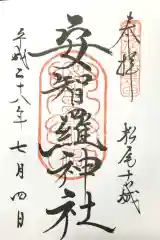 奉拝 松尾
安智羅神社
平成二十八年七月四日